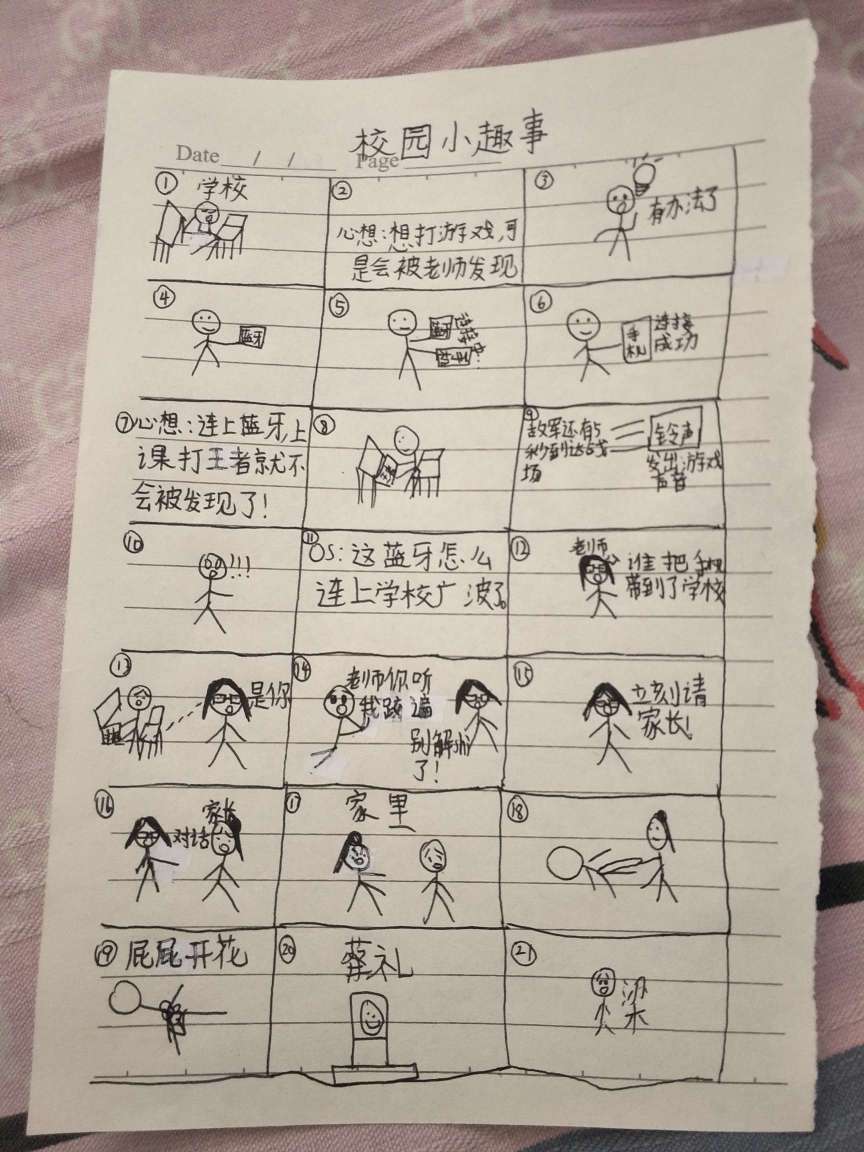 校园小趣事
Date / / Page
① 学校
②
心想:想打游戏,可
是会被老师发现
③
有办法了
④
蓝牙
⑤
蓝牙
连接中...
⑥
手机
连接
成功
⑦心想:连上蓝牙,上
课打王者就不
会被发现了!
⑧
⑨
敌军还有5
秒到达战
场
铃声
发出游戏
声音
⑩
!!!
⑪
OS:这蓝牙怎么
连上学校广波了。
⑫
老师
谁把手机
带到了学校
⑬
是你
⑭
老师你听
我
别解
了!
⑮
立刻请
家长!
⑯
家长
对话
⑰ 家里
⑱
⑲ 屁屁开花
⑳ 蔡礼
㉑
梁